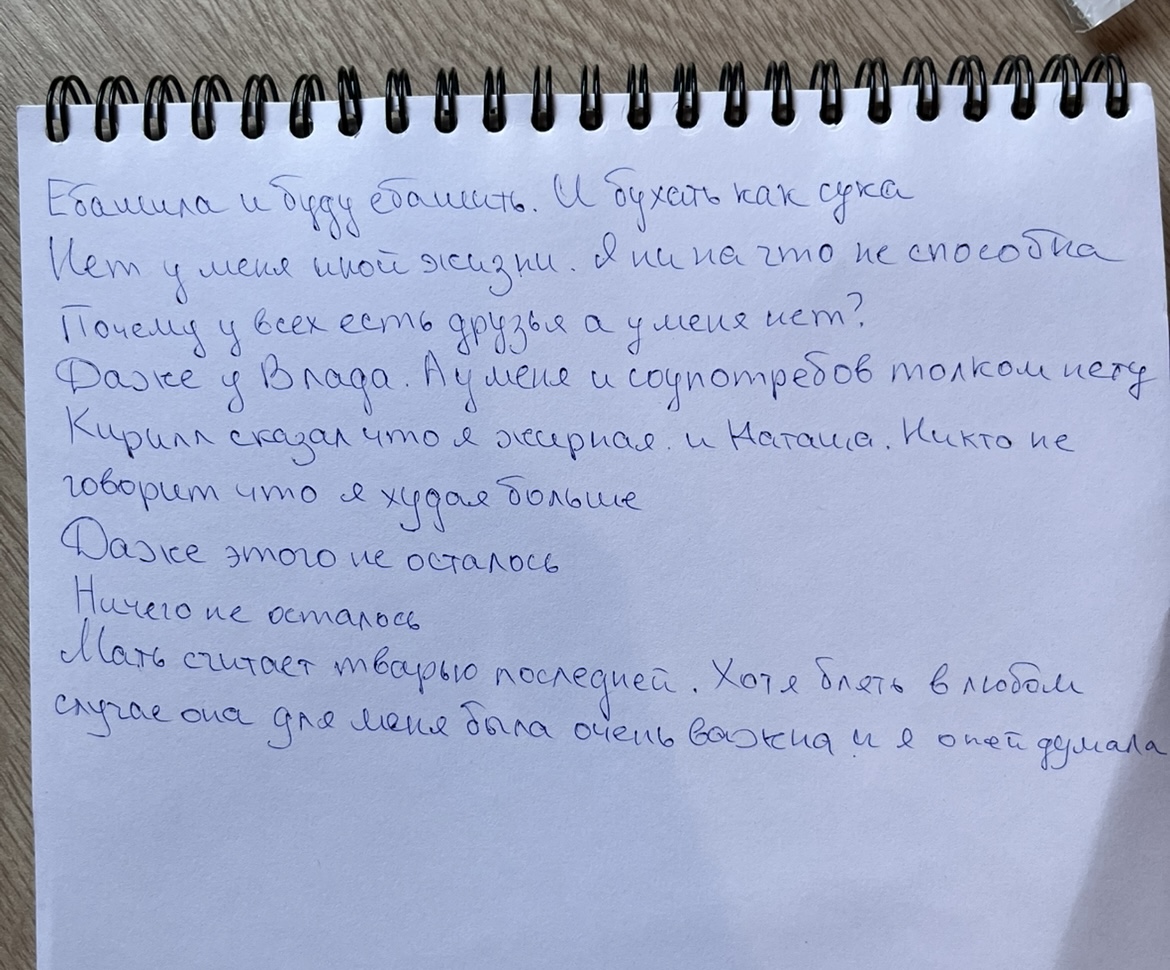 Ебашила и буду ебашить. И бухать как сука
Нет у меня иной жизни. Я ни на что не способна
Почему у всех есть друзья а у меня нет?
Даже у Влада. А у меня и соупотребов толком нету
Кирилл сказал что я жирная. и Наташа. Никто не
говорит что я худая больше
Даже этого не осталось
Ничего не осталось
Мать считает тварью последней. Хотя блять в любом
случае она для меня была очень важна и я о ней думала